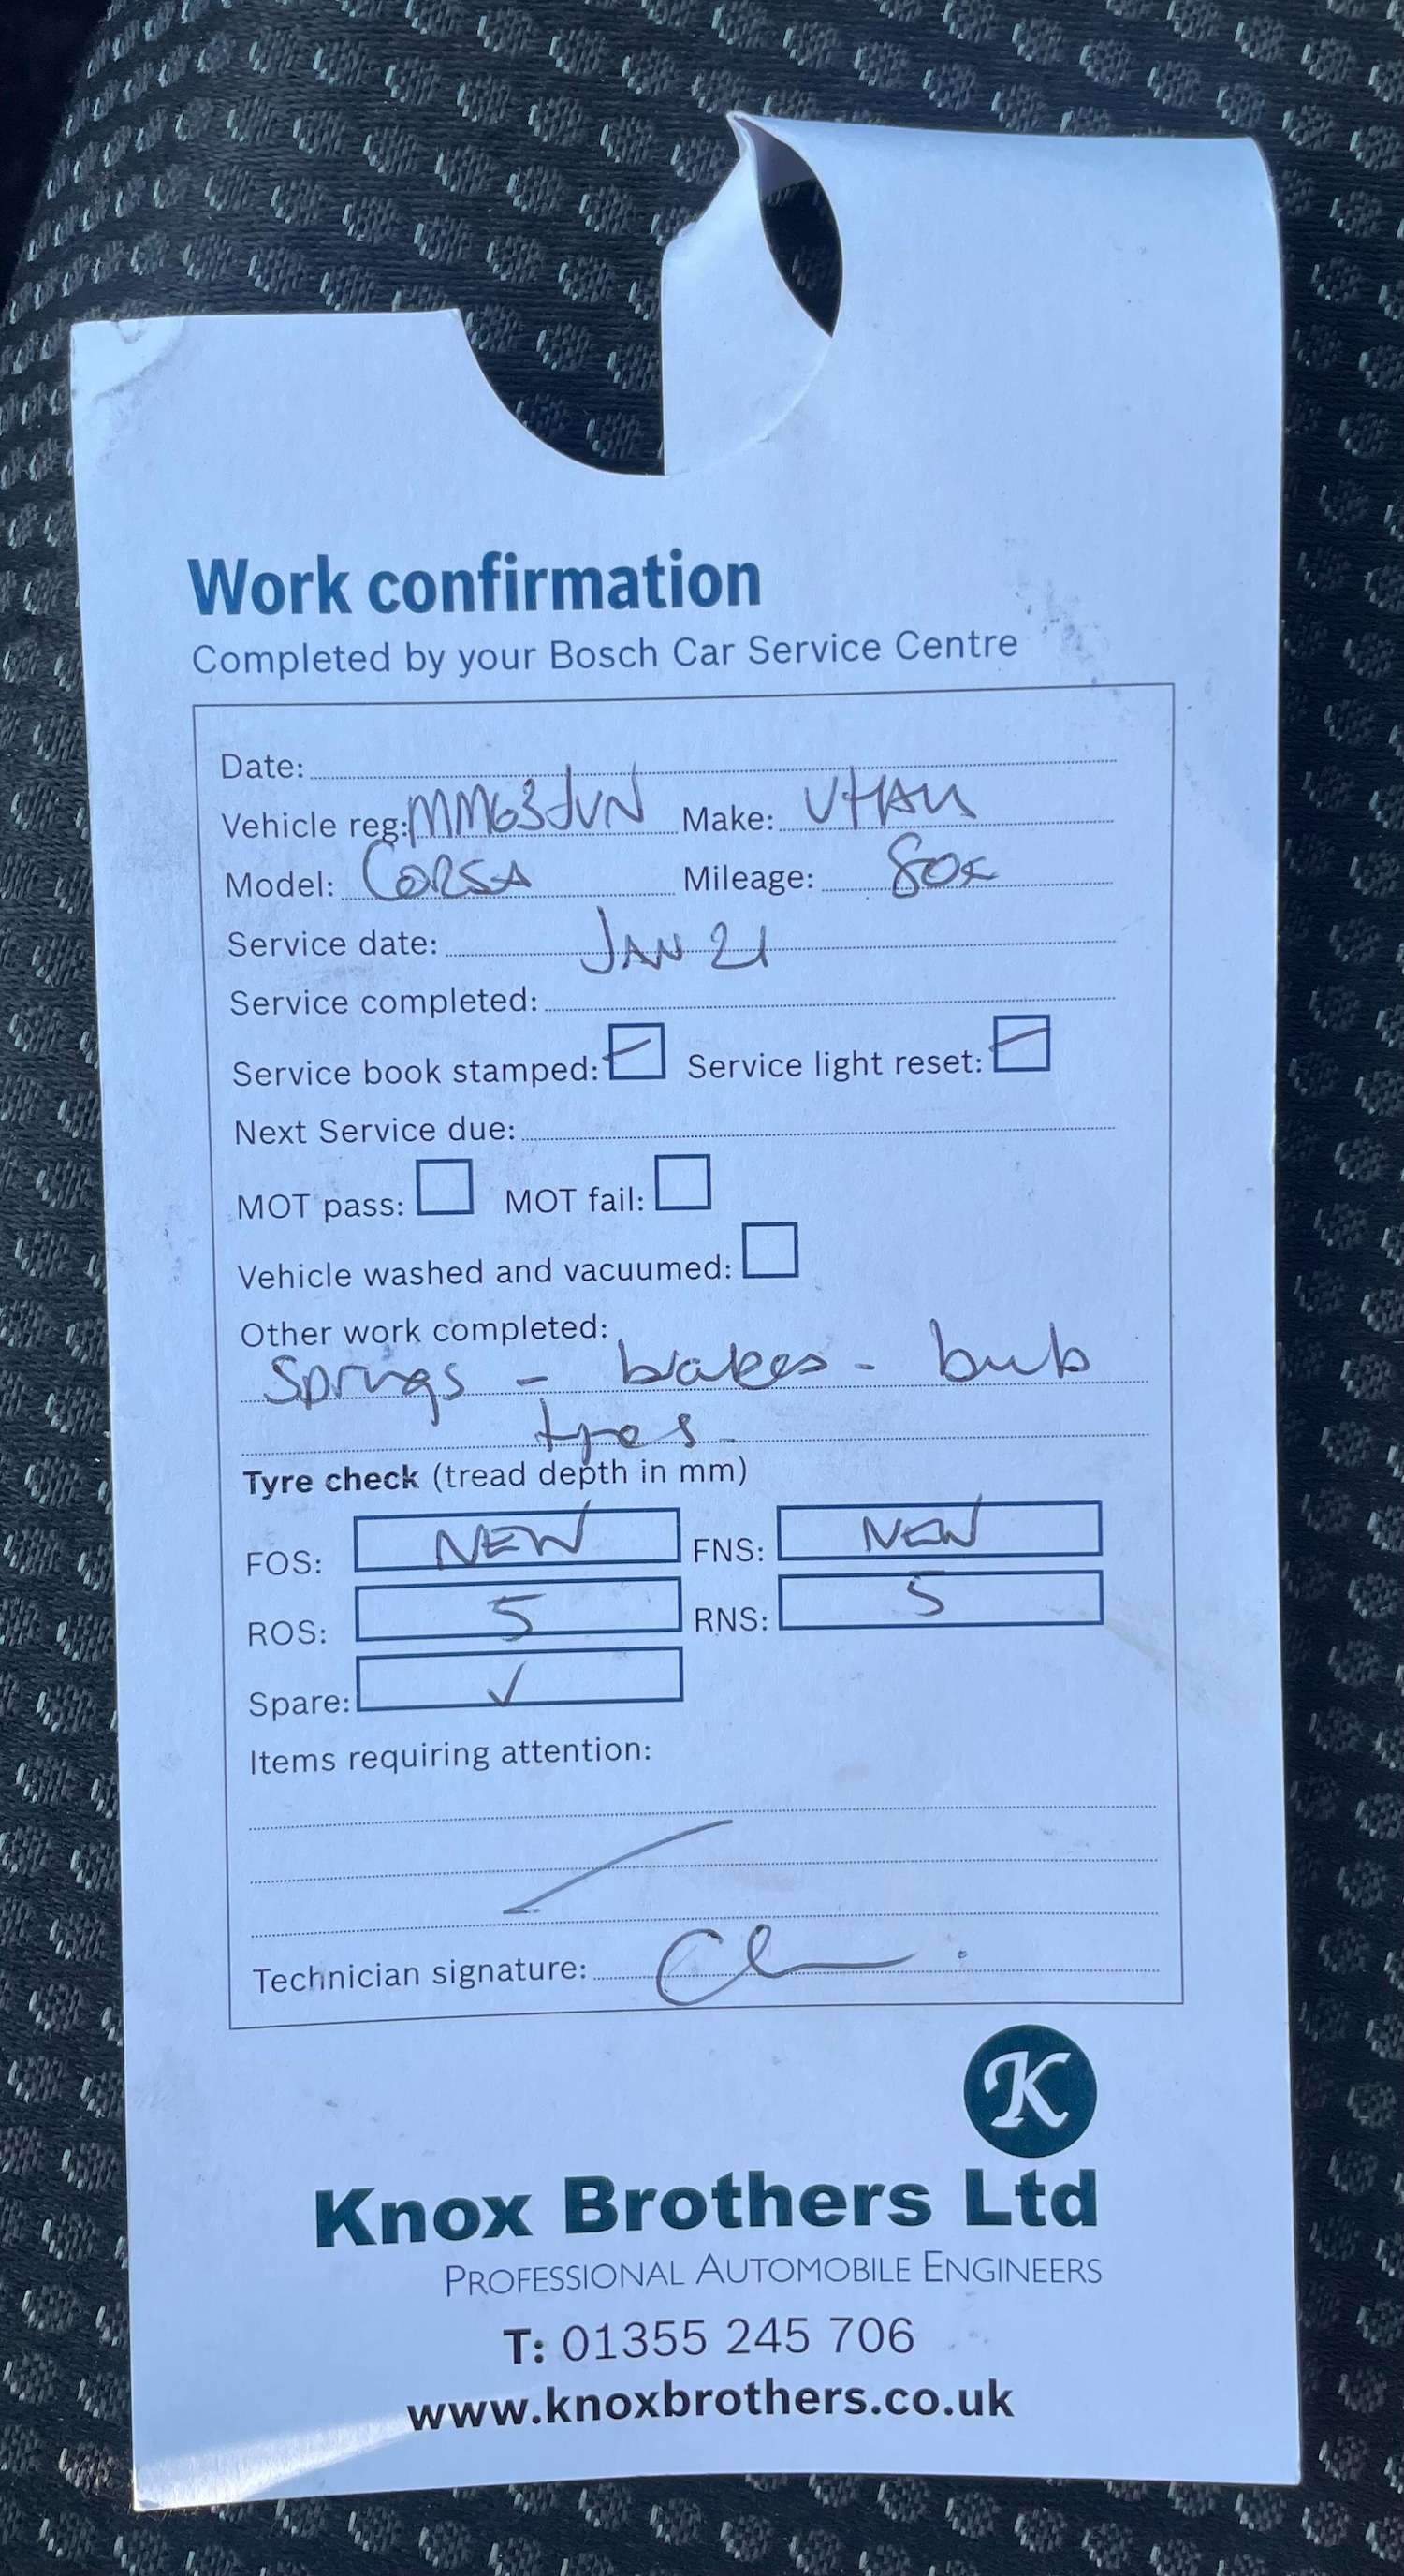 Work confirmation
Completed by your Bosch Car Service Centre
Date:
Vehicle reg: MM63JVN Make: VHAU
Model: CORSA Mileage: 80K
Service date: JAN 21
Service completed:
Service book stamped: Service light reset:
Next Service due:
MOT pass: MOT fail:
Vehicle washed and vacuumed:
Other work completed:
Springs - brakes - bulb
tyres
Tyre check (tread depth in mm)
FOS: NEW FNS: NEW
ROS: 5 RNS: 5
Spare: ✓
Items requiring attention:
Technician signature:
K
Knox Brothers Ltd
PROFESSIONAL AUTOMOBILE ENGINEERS
T: 01355 245 706
www.knoxbrothers.co.uk